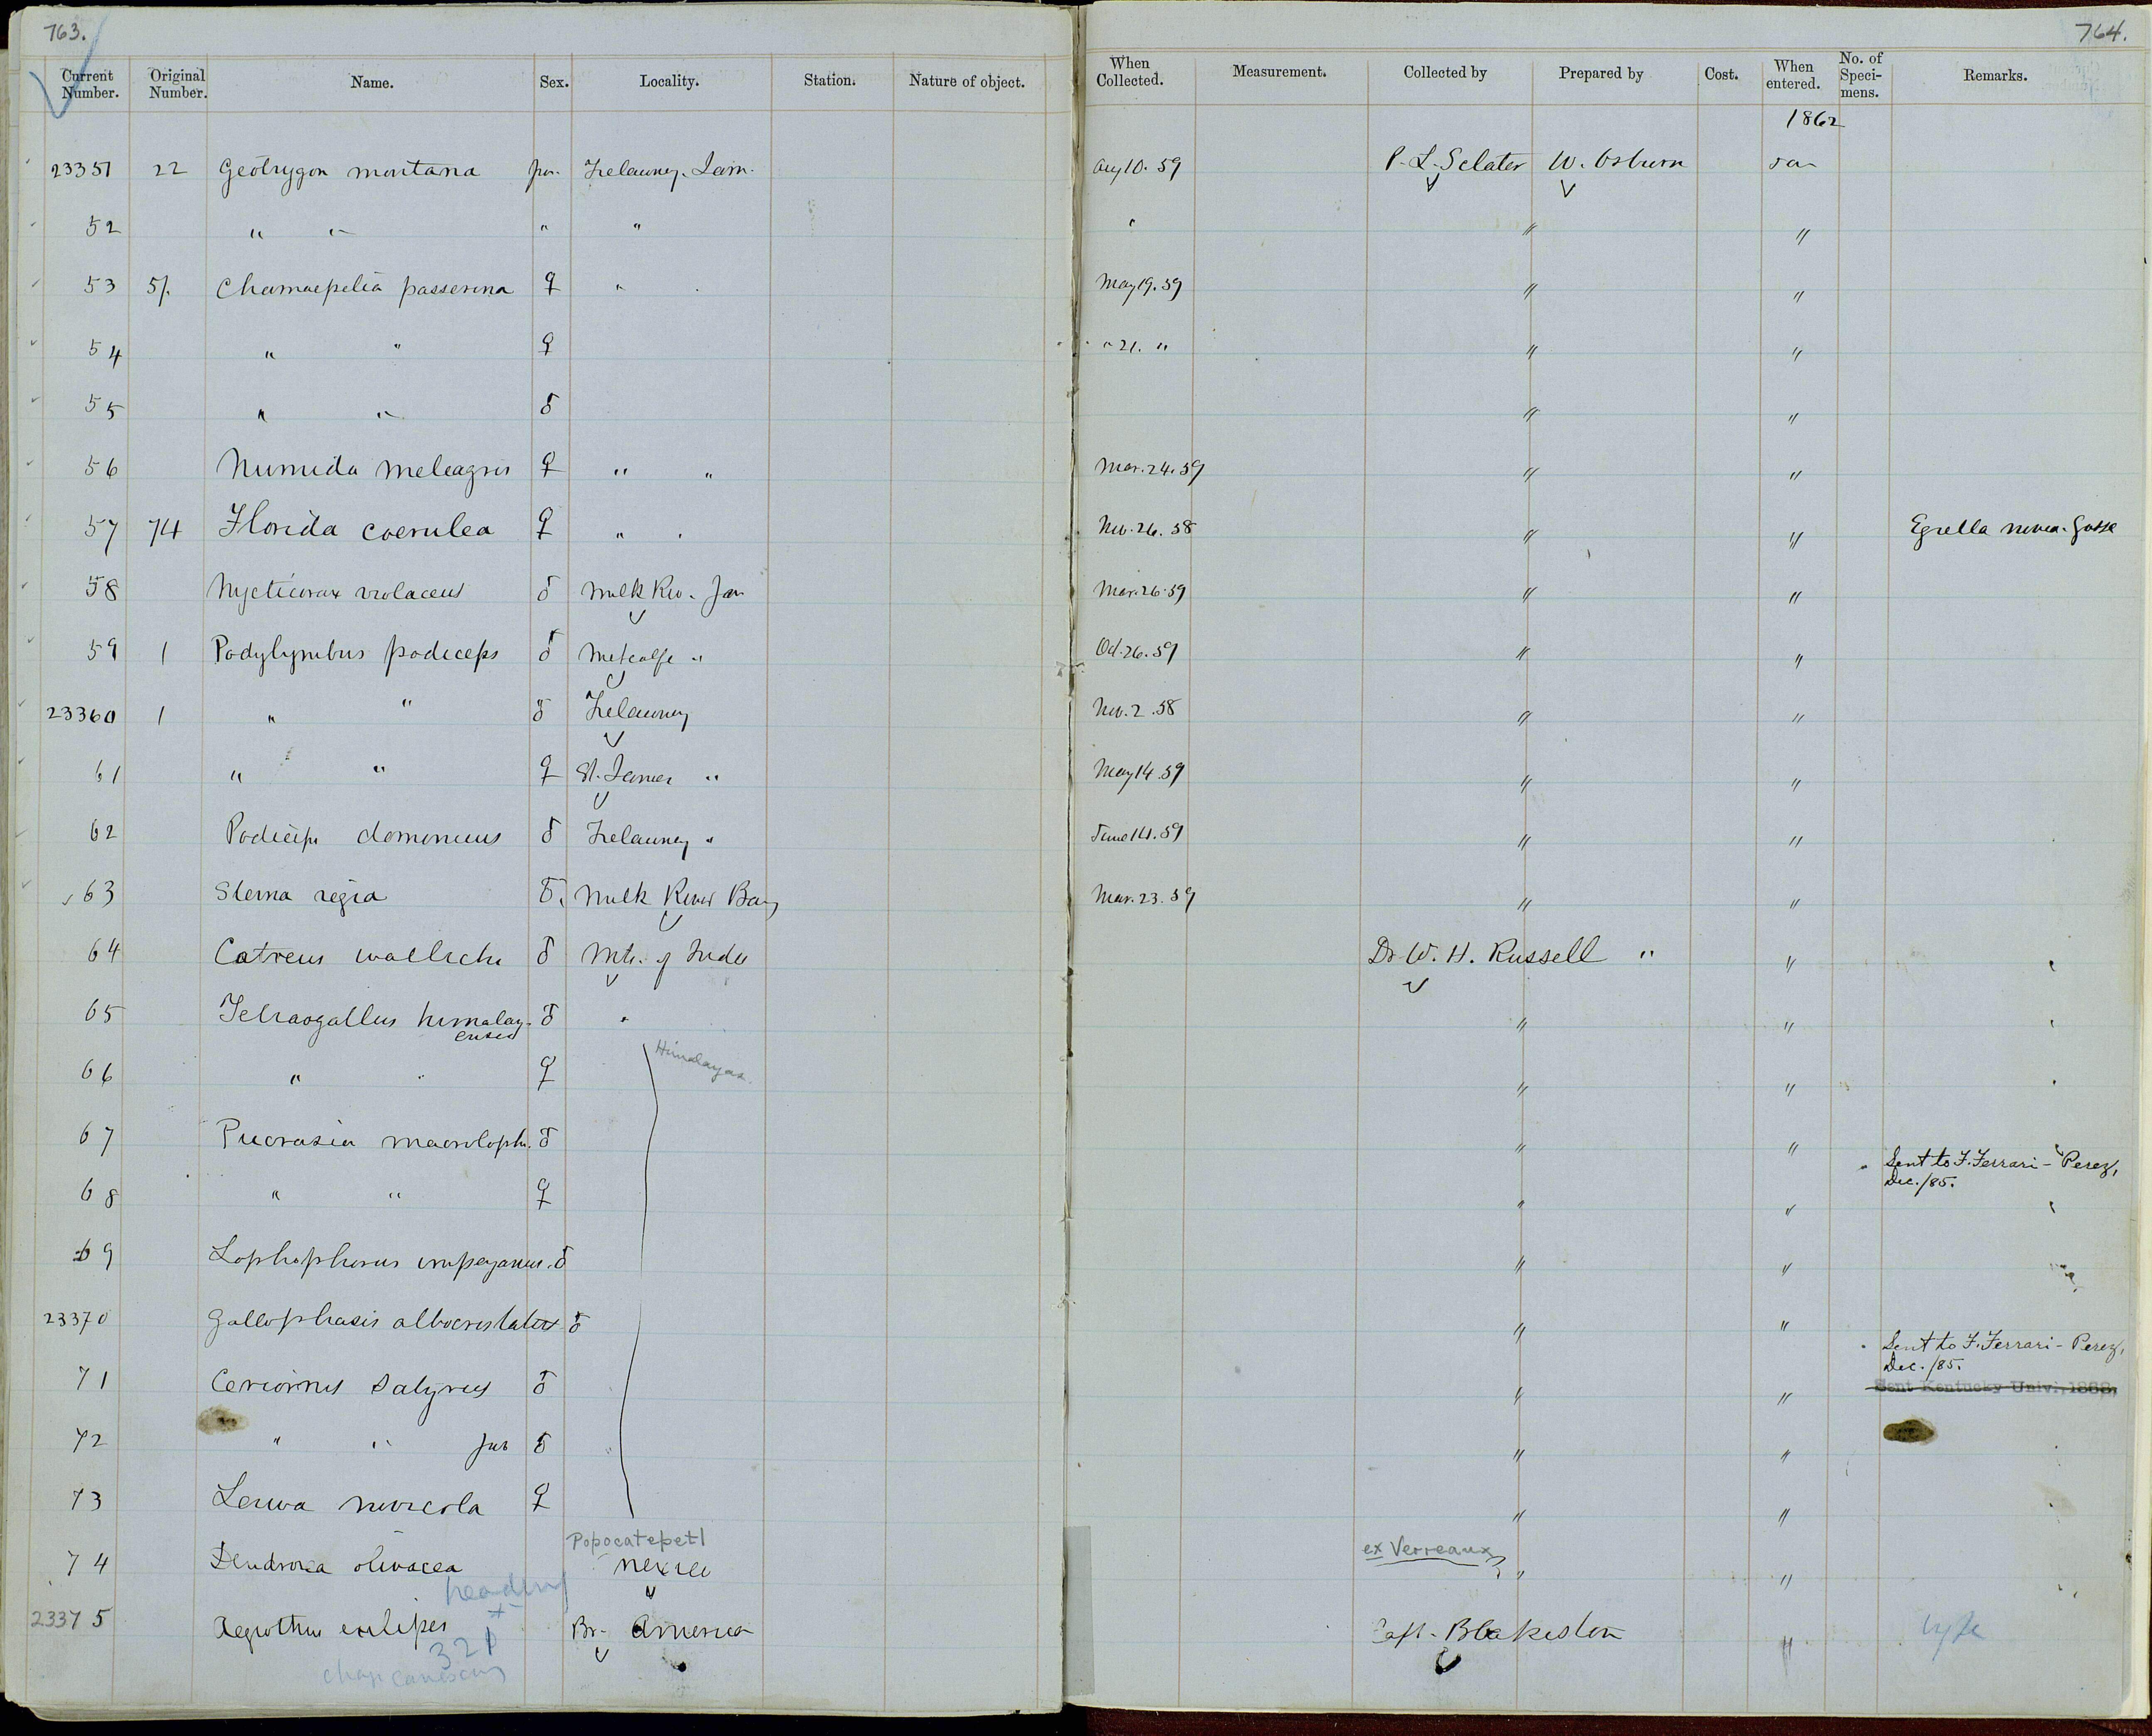 763. 764.
Current Number. Original Number. Name. Sex. Locality. Station. Nature of object. When Collected. Measurement. Collected by Prepared by Cost. When entered. No. of Speci-mens. Remarks.
1862
23351 22 Geotrygon montana juv. Trelawney. Jam. Aug 10. 59 P. L. Sclater W. Osburn Jan
52 " " " " " " "
53 51. Chamaepelia passerina ♀ " May 19. 59 " "
54 " " ♀ " 21. " " "
55 " " ♂ " "
56 Numida meleagris ♀ " " Mar. 24. 59 " "
57 74 Florida coerulea ♀ " " Nov. 26. 58 " " Egretta nivea. Gosse
58 Nycticorax violaceus ♂ Milk Riv. Jam Mar. 26. 59 " "
59 1 Podylymbus podiceps ♂ Metcalfe " Oct. 26. 59 " "
23360 1 " " ♂ Trelawney Nov. 2. 58 " "
61 " " ♀ St. James " May 14. 59 " "
62 Podiceps dominicus ♂ Trelawney " June 14. 59 " "
63 Sterna regia ♂. Milk River Bay Mar. 23. 59 " "
64 Catreus wallichi ♂ Mts. of India Dr W. H. Russell " "
65 Tetraogallus himalay-ensis ♂ " " "
66 " " ♀ Himalayas. " "
67 Pucrasia macroloph. ♂ " "
Sent to F. Ferrari-Perez, Dec. /85.
68 " " ♀ " "
69 Lophophorus impeyanus. ♂ " "
23370 Gallophasis albocristatus ♂ " "
Sent to F. Ferrari-Perez, Dec. /85.
71 Ceriornis Satyrus ♂ " " Sent Kentucky Univ., 1868,
72 " " juv ♂ " "
73 Lerwa nivicola ♀ " "
Popocatepetl ex Verreaux
74 Dendroica olivacea Mexico " "
23375 Aegiothus exilipes Br. America Capt. Blakiston "
321